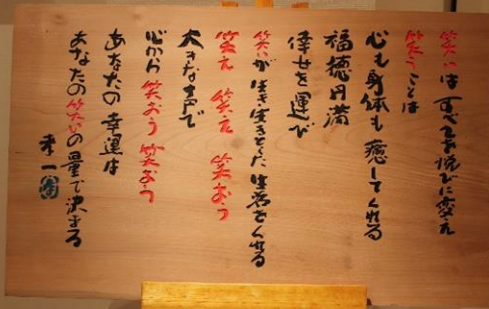 笑いはすべてを悦びに変え
笑うことは
心も身体も癒してくれる
福徳円満
倖せを運び
笑いが生き生きとした生活をくれる
笑え 笑え 笑おう
大きな声で
心から 笑おう 笑おう
あなたの幸運は
あなたの笑いの量で決まる
一